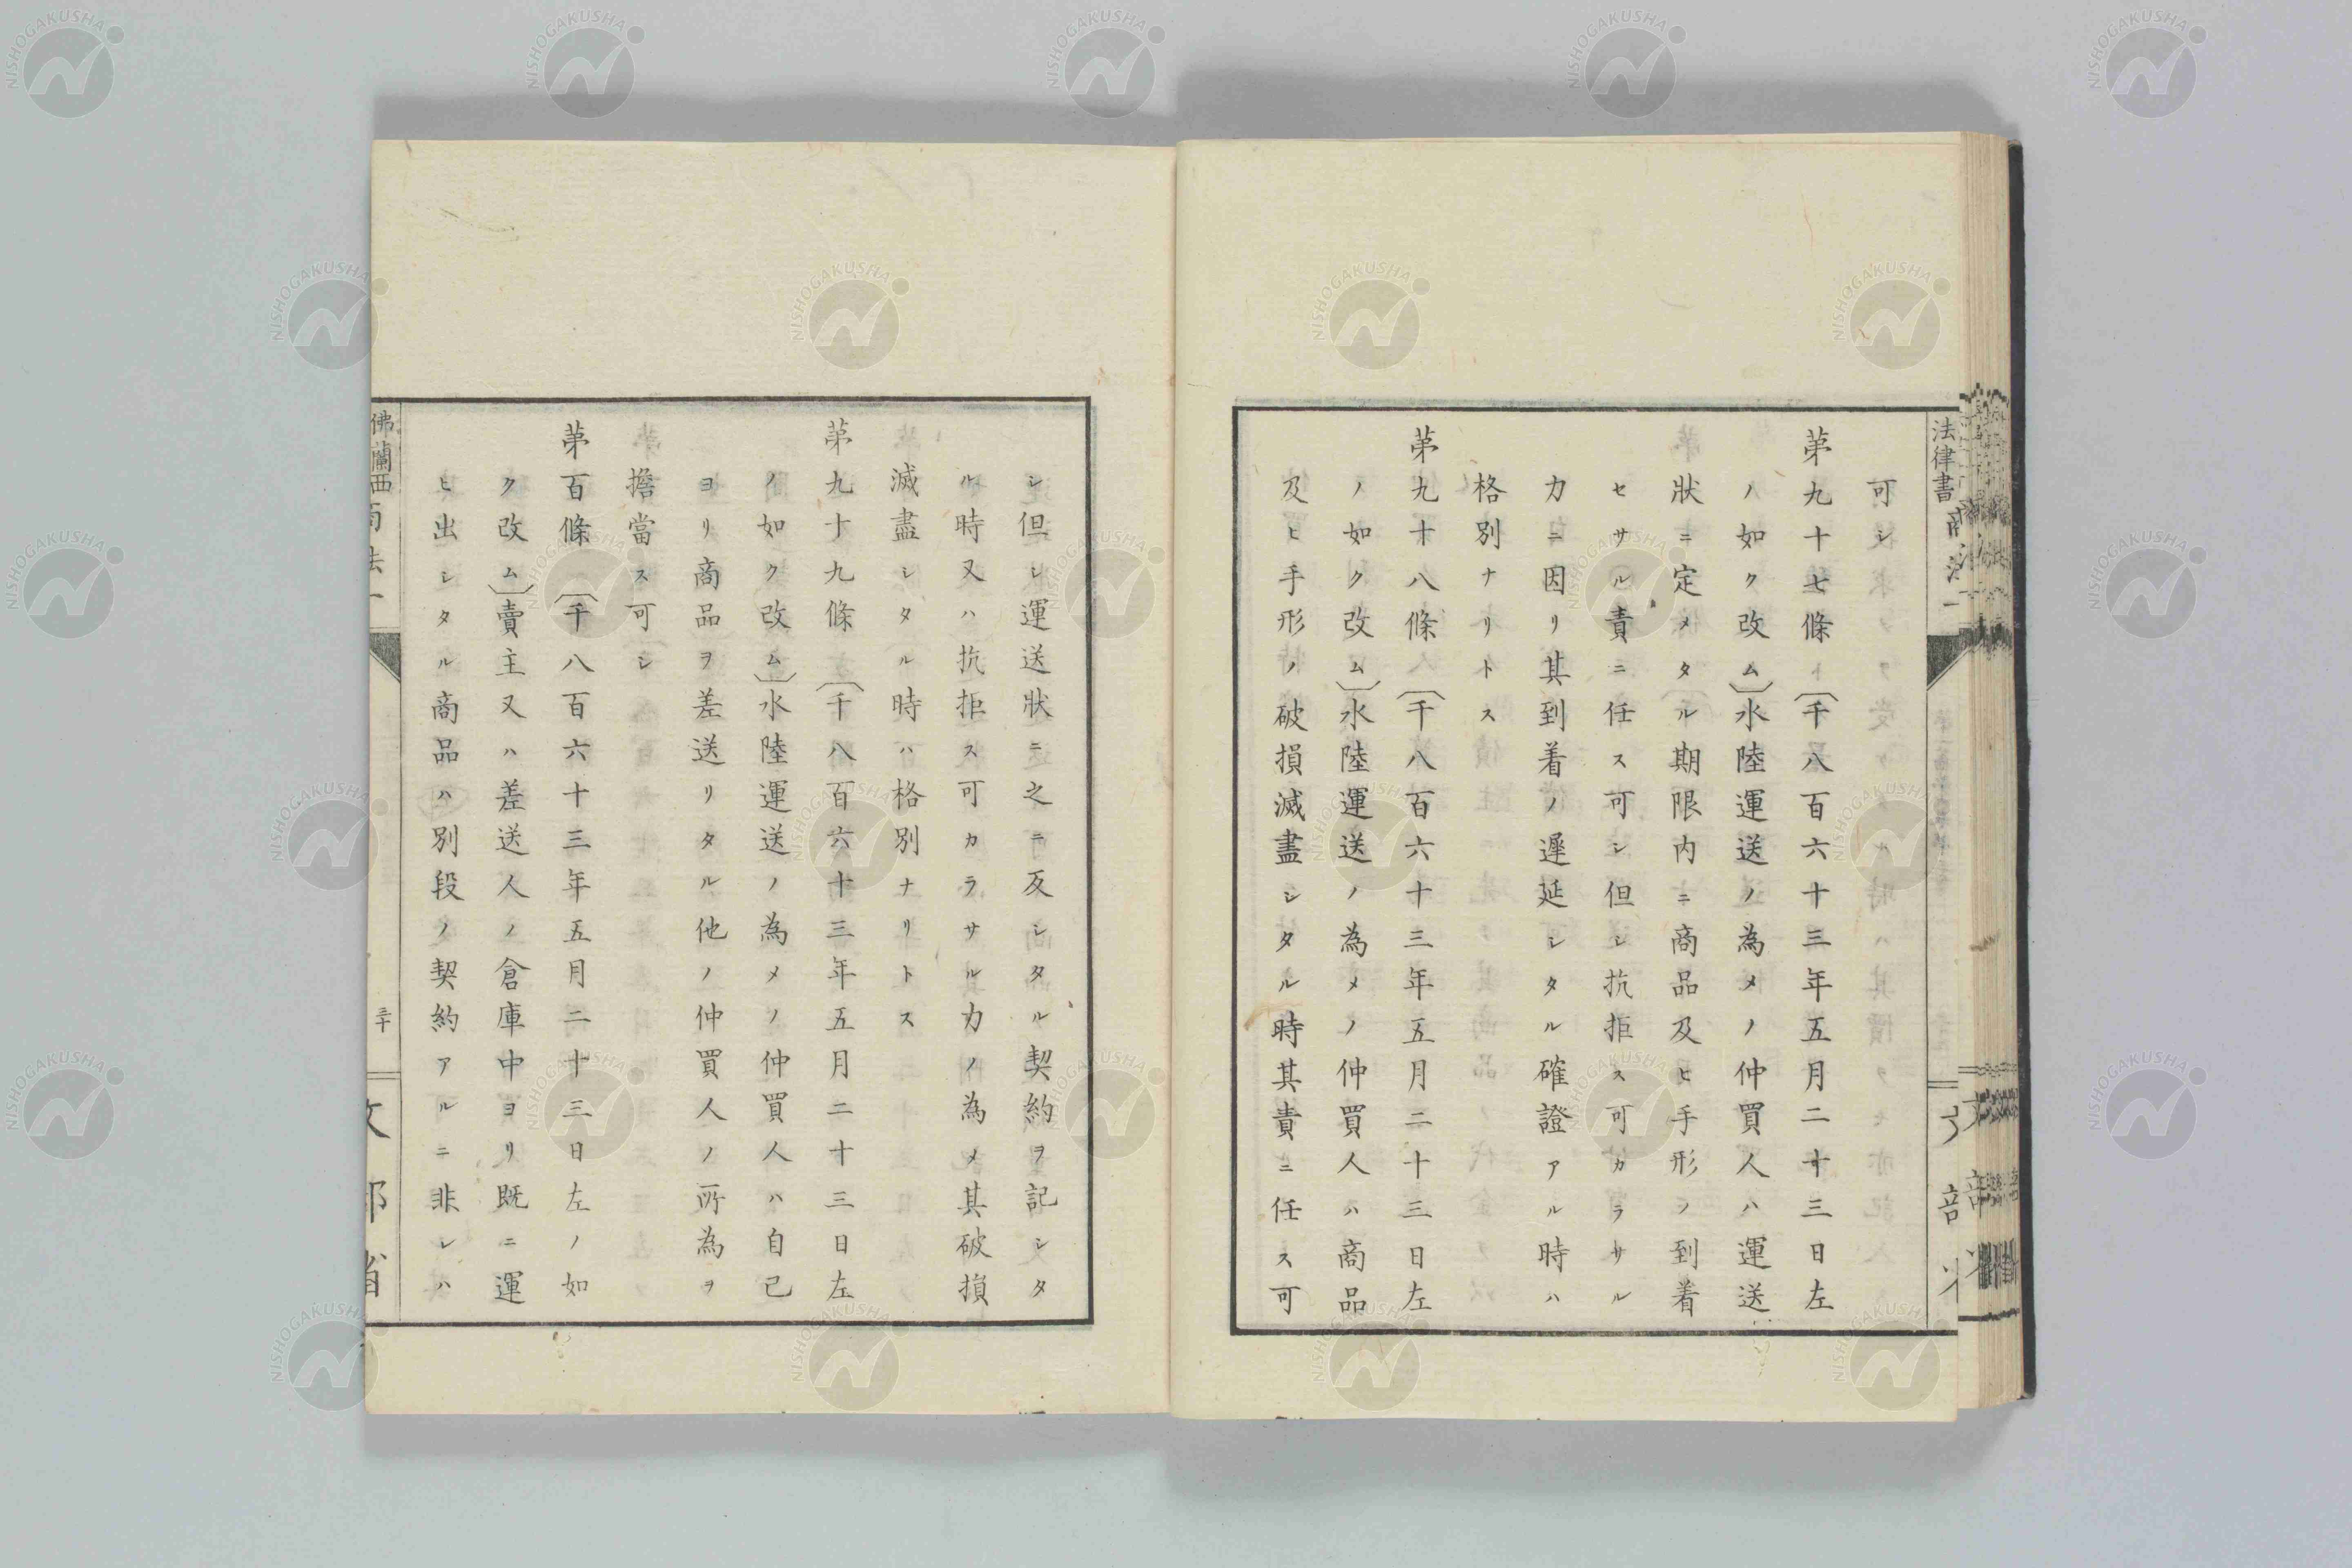 可シ
第九十七條〔千八百六十三年五月二十三日左
ノ如ク改ム〕水陸運送ノ為メノ仲買人ハ運送
狀ニ定メタル期限内ニ商品及ヒ手形ノ到着
セサル責ニ任ス可シ但シ抗拒ス可カラサル
力ニ因リ其到着ノ遲延シタル確證アル時ハ
格別ナリトス
第九十八條〔千八百六十三年五月二十三日左
ノ如ク改ム〕水陸運送ノ為メノ仲買人ハ商品
及ヒ手形ノ破損滅盡シタル時其責ニ任ス可
法律書
シ但シ運送狀ニ之ニ反シタル契約ヲ記シタ
ル時又ハ抗拒ス可カラサル力ノ為メ其破損
滅盡シタル時ハ格別ナリトス
第九十九條〔千八百六十三年五月二十三日左
ノ如ク改ム〕水陸運送ノ為メノ仲買人ハ自己
ヨリ商品ヲ差送リタル他ノ仲買人ノ所為ヲ
擔當ス可シ
第百條〔千八百六十三年五月二十三日左ノ如
ク改ム〕賣主又ハ差送人ノ倉庫中ヨリ既ニ運
ヒ出シタル商品ハ別段ノ契約アルニ非レハ
佛蘭西商法一
三十
文部省
NISHOGAKUSHA